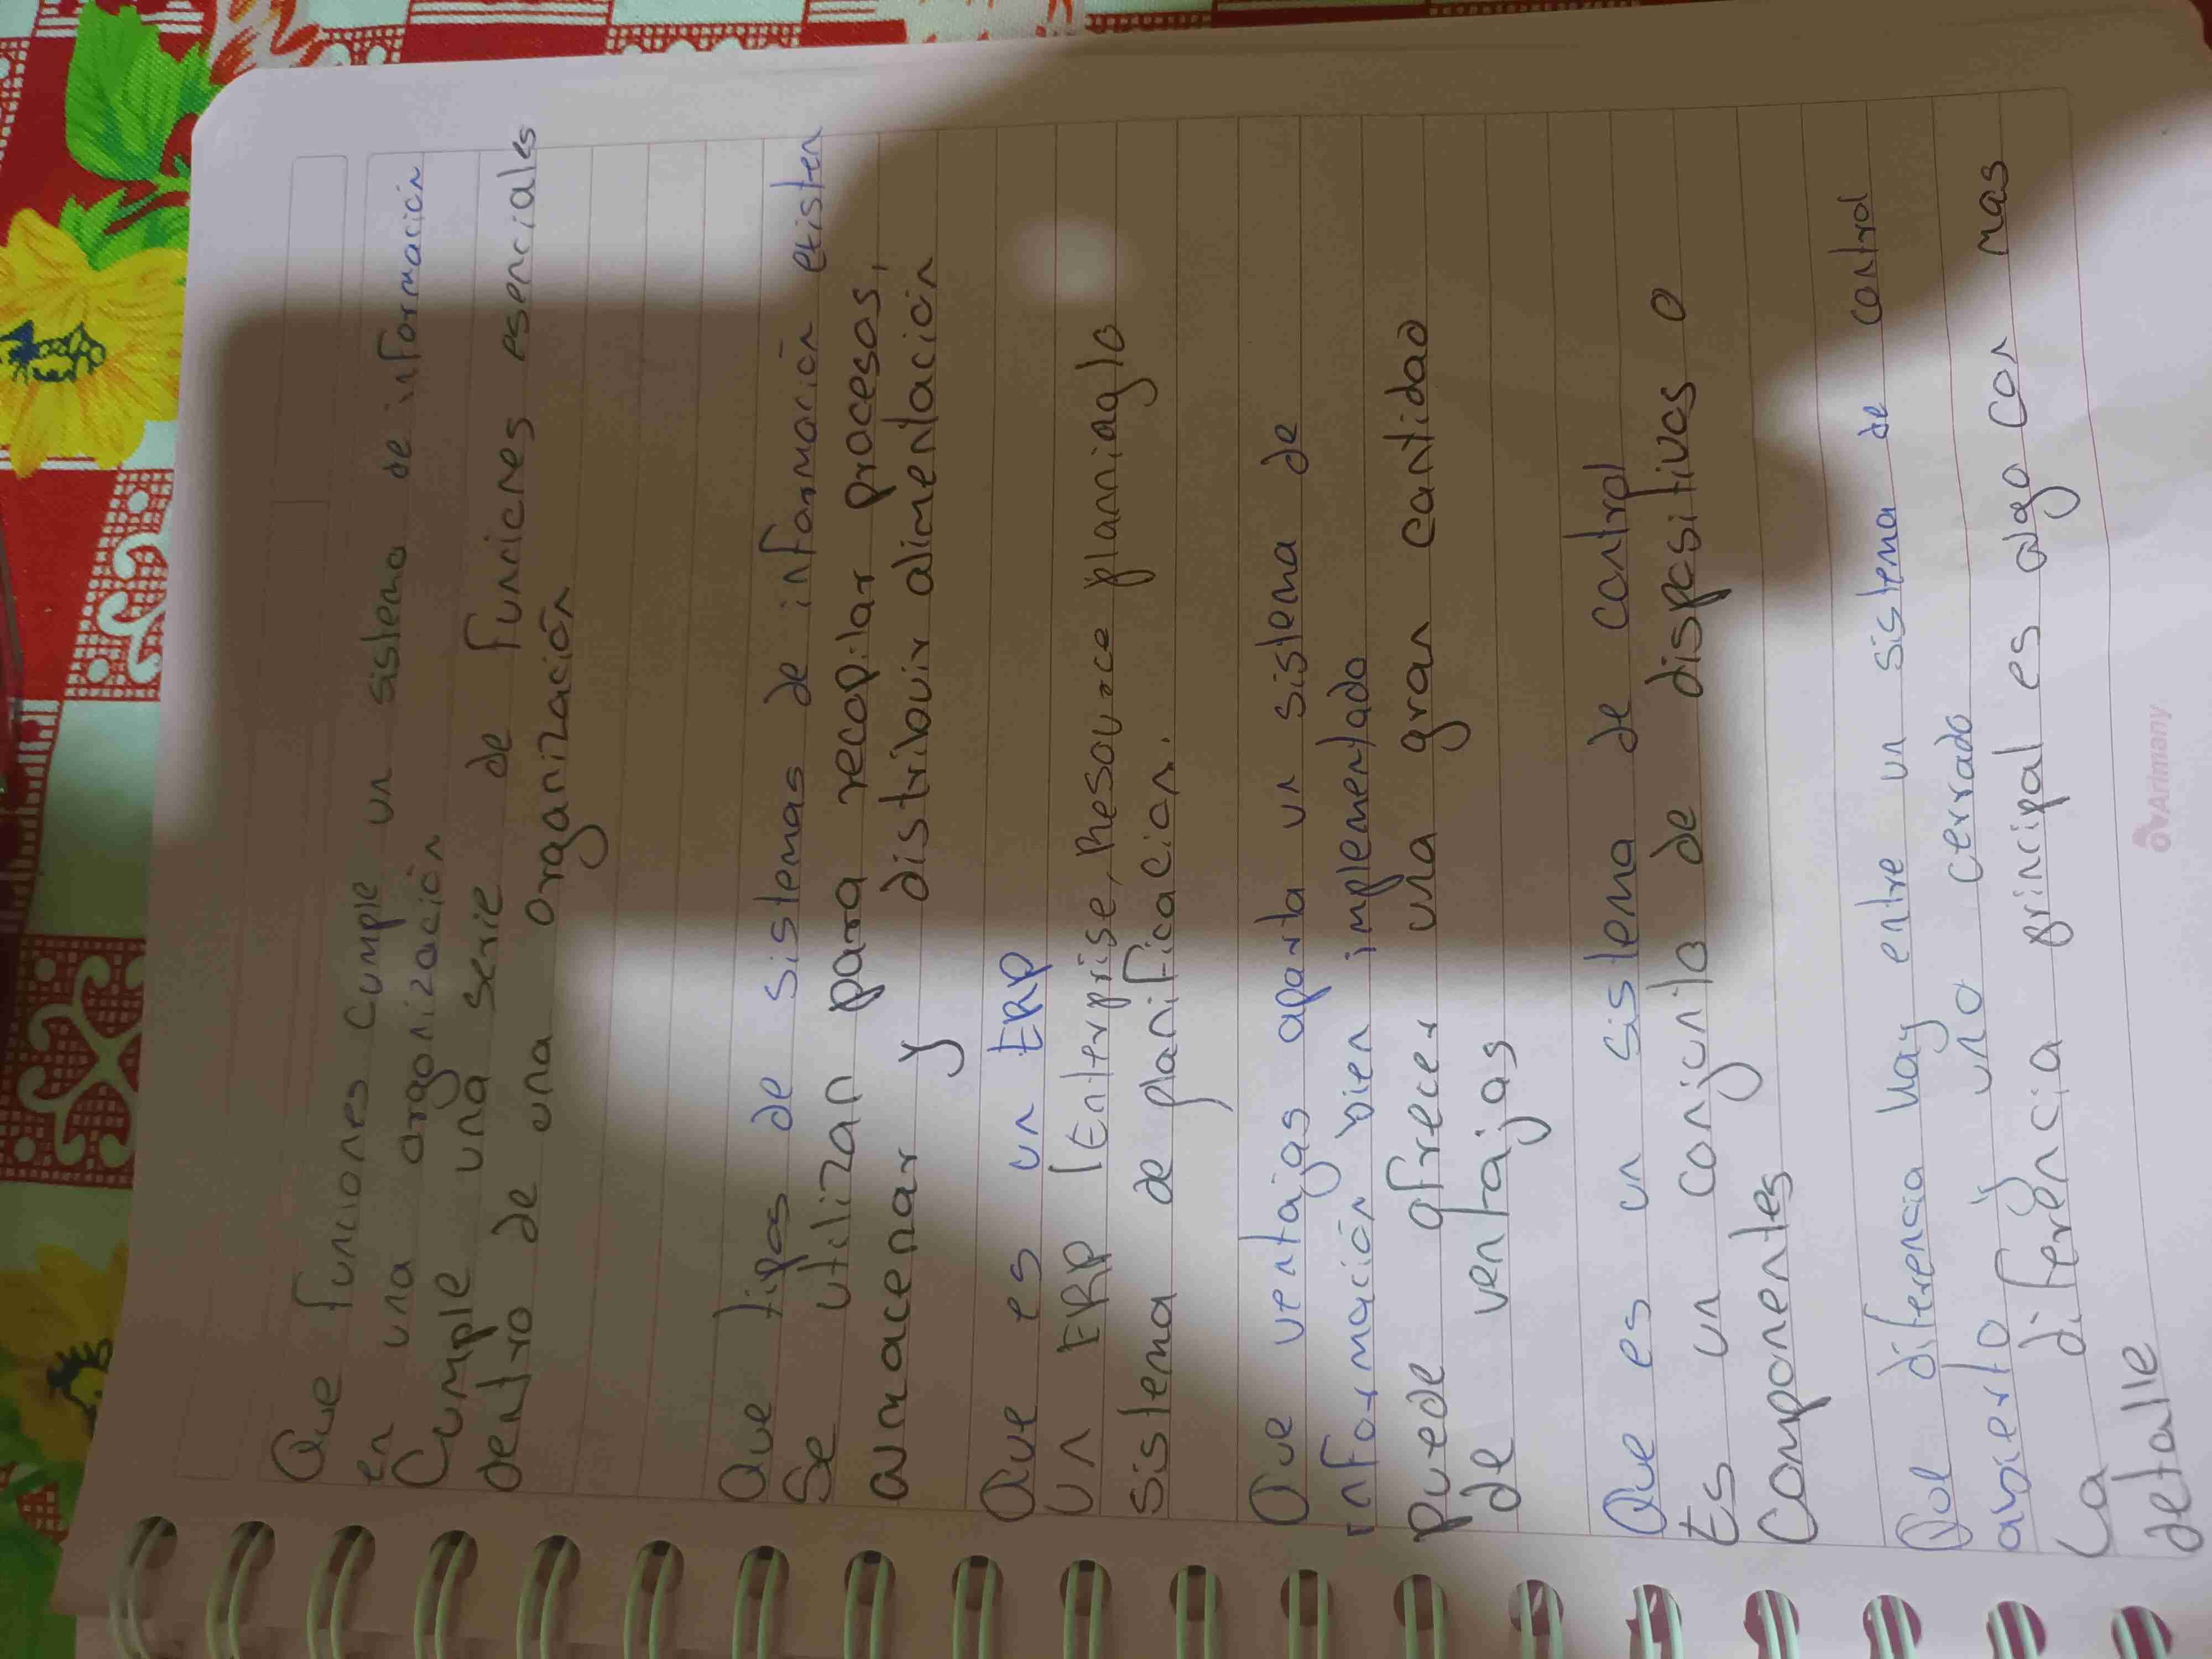 Que funciones cumple un sistema de información
en una organización
Cumple una serie de funciones esenciales
dentro de una organización
Que tipos de sistemas de información existen
Se utilizan para recopilar procesos,
almacenar y distribuir alimentación
Que es un ERP
Un ERP (Enterprise, Resource planniaglo
sistema de planificacion.
Que ventajas aparta un sistema de
información bien implementado
Puede ofrecer una gran cantidad
de ventajas
Que es un sistema de control
Es un conjunto de dispositivos o
Componentes
Que diferencia hay entre un sistema de control
abierto y uno cerrado
La diferencia principal es algo con mas
detalle
Arimany